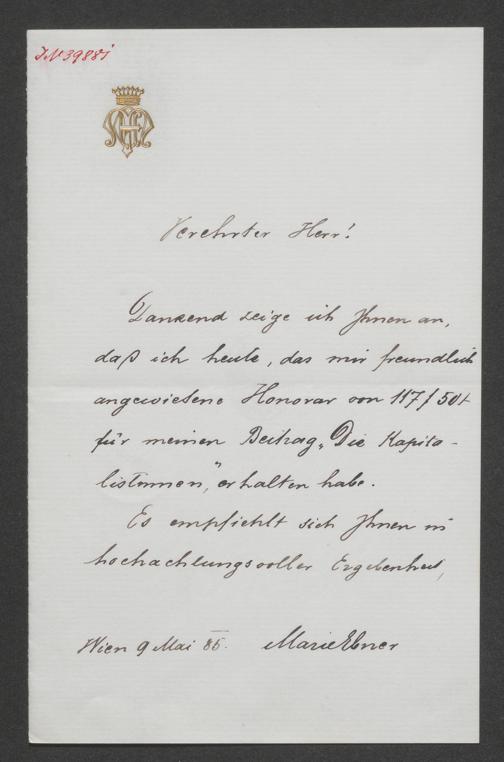 JN 39881
Verehrter Herr!
Dankend zeige ich Ihnen an,
daß ich heute, das mir freundlich
angewiesene Honorar von 117 f 50 +
für meinen Beitrag „Die Kapita-
listinnen", erhalten habe.
Es empfiehlt sich Ihnen in
hochachtungsvoller Ergebenheit,
Wien 9 Mai 85. Marie Ebner